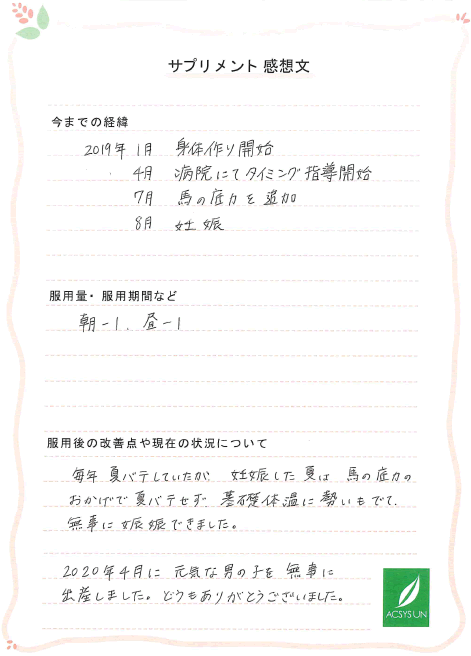 サプリメント 感想文
今までの経緯
2019年 1月 身体作り開始
4月 病院にてタイミング指導開始
7月 馬の底力を追加
8月 妊娠
服用量・服用期間など
朝-1、昼-1
服用後の改善点や現在の状況について
毎年 夏バテしていたが 妊娠した夏は 馬の底力の
おかげで夏バテせず 基礎体温に勢いもでて、
無事に妊娠できました。
2020年4月に 元気な男の子を 無事に
出産しました。どうもありがとうございました。
ACSYSUN